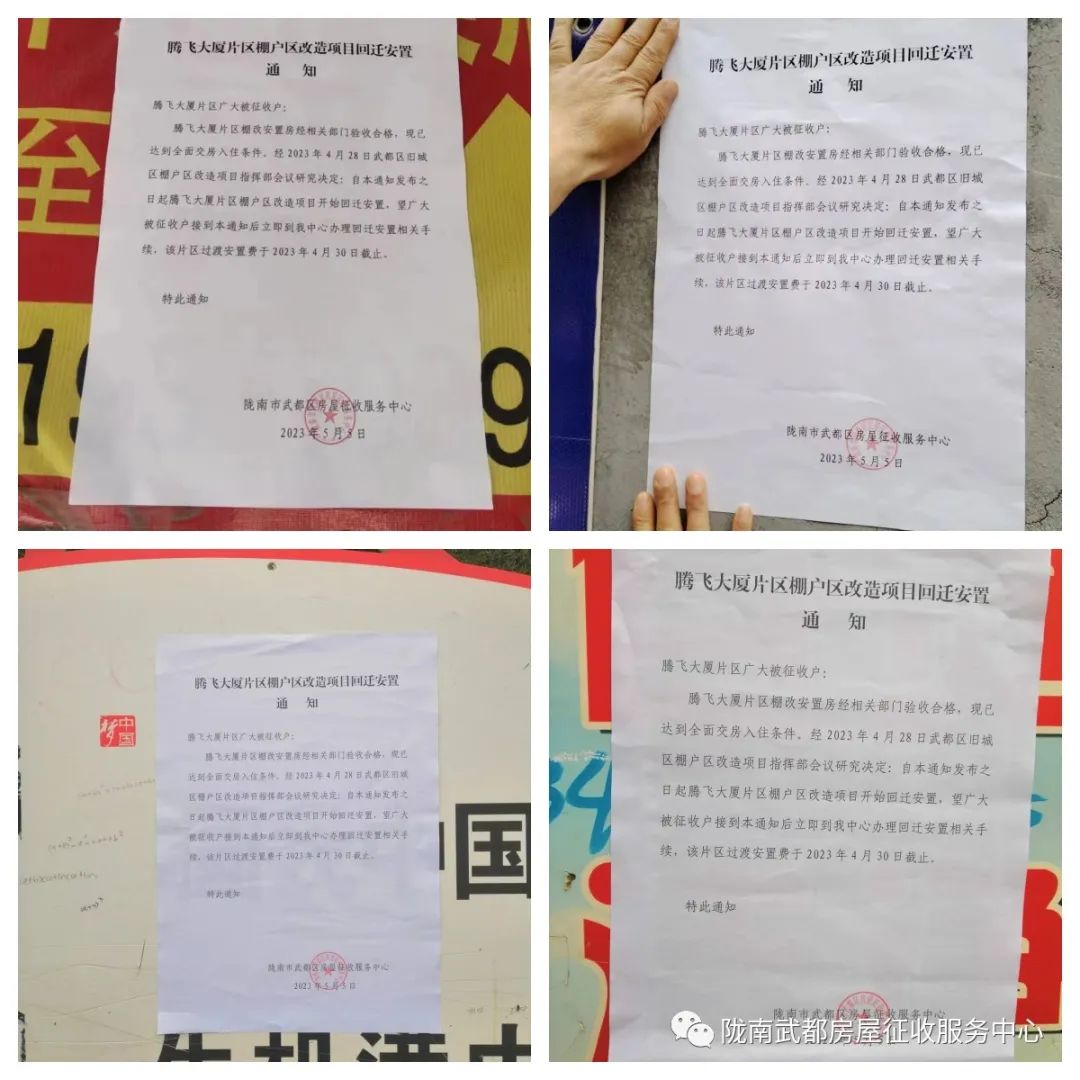 腾飞大厦片区棚户区改造项目回迁安置
通 知
腾飞大厦片区广大被征收户：
腾飞大厦片区棚改安置房经相关部门验收合格，现已
达到全面交房入住条件。经 2023 年 4 月 28 日武都区旧城
区棚户区改造项目指挥部会议研究决定：自本通知发布之
日起腾飞大厦片区棚户区改造项目开始回迁安置，望广大
被征收户接到本通知后立即到我中心办理回迁安置相关手
续，该片区过渡安置费于 2023 年 4 月 30 日截止。
特此通知
陇南市武都区房屋征收服务中心
2023 年 5 月 5 日
至
19
9
腾飞大厦片区棚户区改造项目回迁安置
通 知
腾飞大厦片区广大被征收户：
腾飞大厦片区棚改安置房经相关部门验收合格，现已
达到全面交房入住条件。经 2023 年 4 月 28 日武都区旧城
区棚户区改造项目指挥部会议研究决定：自本通知发布之
日起腾飞大厦片区棚户区改造项目开始回迁安置，望广大
被征收户接到本通知后立即到我中心办理回迁安置相关手
续，该片区过渡安置费于 2023 年 4 月 30 日截止。
特此通知
陇南市武都区房屋征收服务中心
2023 年 5 月 5 日
腾飞大厦片区棚户区改造项目回迁安置
通 知
腾飞大厦片区广大被征收户：
腾飞大厦片区棚改安置房经相关部门验收合格，现已
达到全面交房入住条件。经 2023 年 4 月 28 日武都区旧城
区棚户区改造项目指挥部会议研究决定：自本通知发布之
日起腾飞大厦片区棚户区改造项目开始回迁安置，望广大
被征收户接到本通知后立即到我中心办理回迁安置相关手
续，该片区过渡安置费于 2023 年 4 月 30 日截止。
特此通知
陇南市武都区房屋征收服务中心
2023 年 5 月 5 日
中国
梦
国
腾飞大厦片区棚户区改造项目回迁安置
通 知
腾飞大厦片区广大被征收户：
腾飞大厦片区棚改安置房经相关部门验收合格，现已
达到全面交房入住条件。经 2023 年 4 月 28 日武都区旧城
区棚户区改造项目指挥部会议研究决定：自本通知发布之
日起腾飞大厦片区棚户区改造项目开始回迁安置，望广大
被征收户接到本通知后立即到我中心办理回迁安置相关手
续，该片区过渡安置费于 2023 年 4 月 30 日截止。
特此通知
陇南市武都区房屋征收服务中心
陇南武都房屋征收服务中心